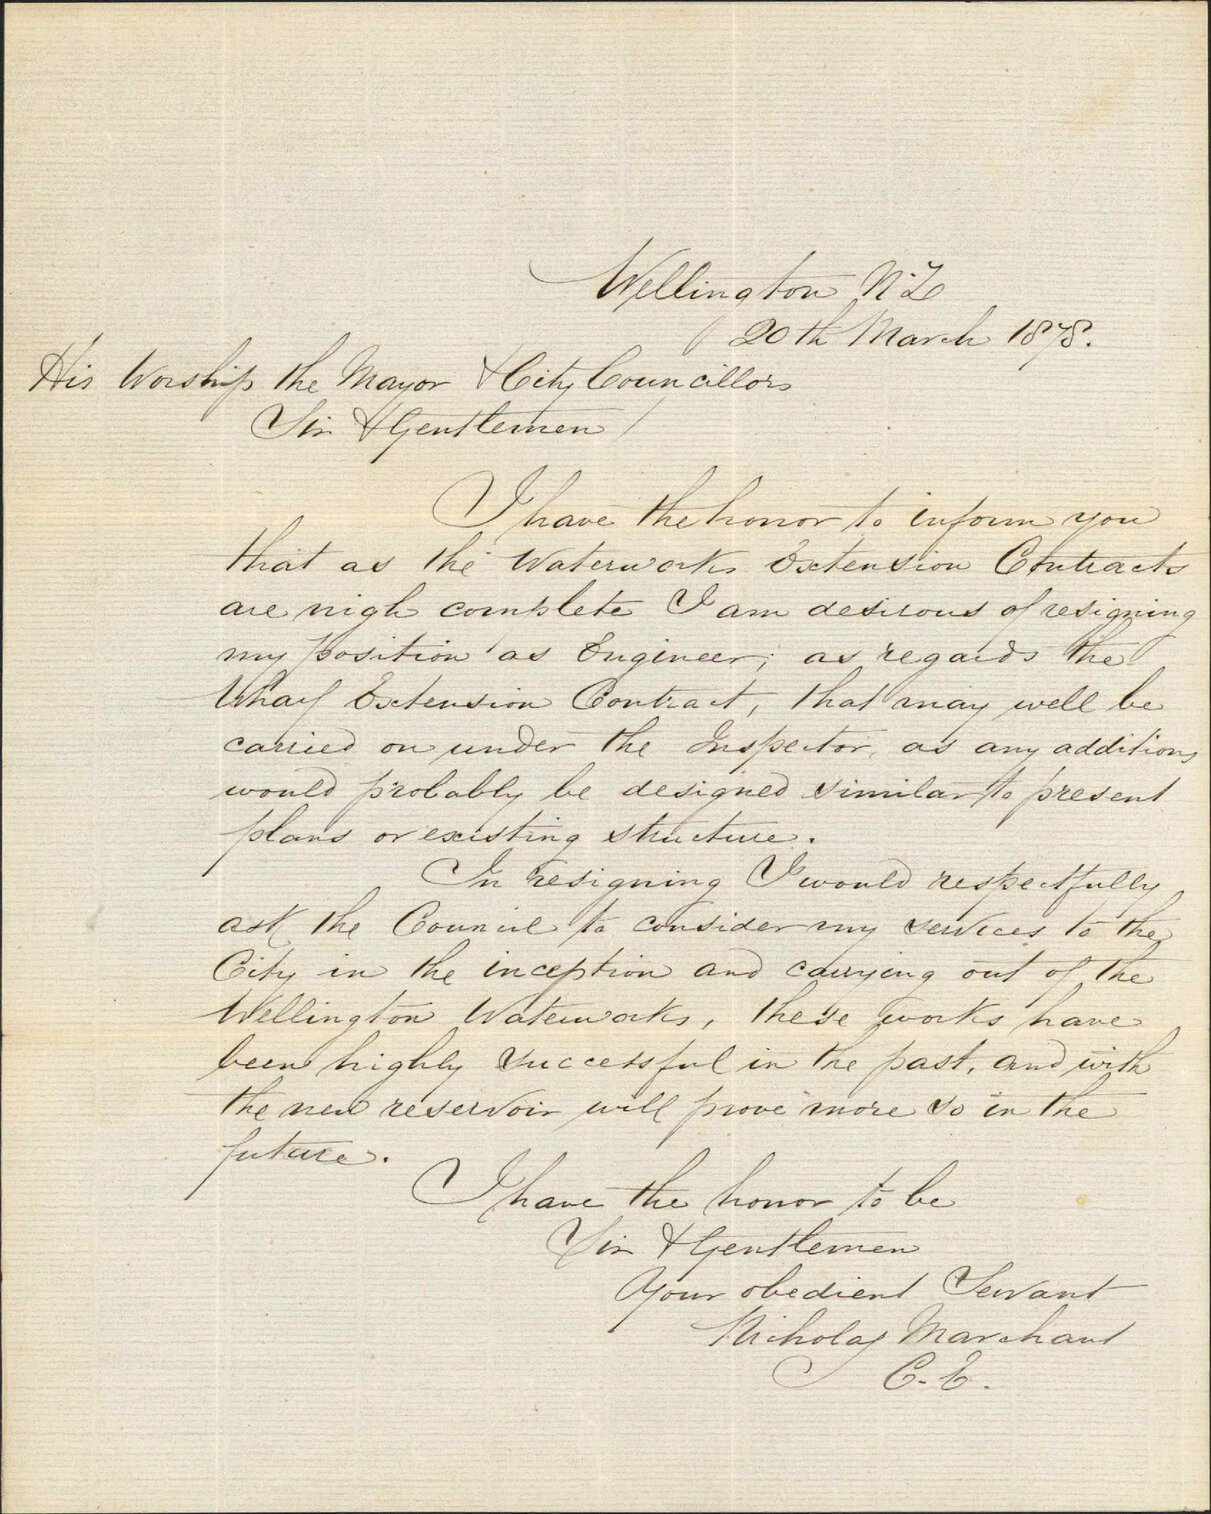 Wellington N.Z
20th March 1878.
His Worship the Mayor & City Councillors
Sir & Gentlemen /
I have the honor to inform you
that as the Waterworks Extension Contracts
are nigh complete I am desirous of resigning
my position as Engineer; as regards the
Wharf Extension Contract, that may well be
carried on under the Inspector, as any additions
would probably be designed similar to present
plans or existing structure.
In resigning I would respectfully
ask the Council to consider my services to the
City in the inception and carrying out of the
Wellington Waterworks, these works have
been highly successful in the past, and with
the new reservoir will prove more so in the
future.
I have the honor to be
Sir & Gentlemen
Your obedient Servant
Nicholas Marchant
C.E.